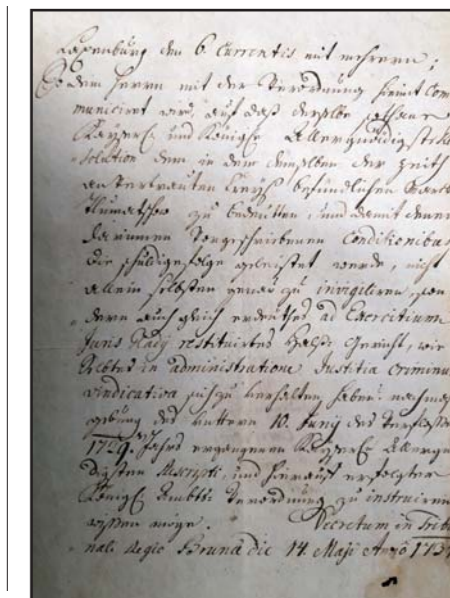 Laxenburg den 6. Currentis mit mehrern;
dem Herrn mit der Verordnung hiemit Com
municiret wird, auf daß derselbe sothane
Kayser. und Königl. Allergnädigste Re
solution dem in dem demselben der Zeith
anvertrauten Creyß befindlichen Marck
Tlumatschow zu bedeutten, und damit denen
darinnen Vorgeschriebenen Conditionibus
die schuldige folge geleistet werde, nicht
allein selbsten genau zu invigiliren, son
dern auch gleich erdeuthes ad Exercitium
Juris Gladij restituirtes Halß Gericht, wie
in administratione Justitiae criminu
vindicativa sich zu verhalten habe nachmaß
gebung des untern 10. Juny des Verflosse
1729. Jahrs ergangenen Kayser. Allergnä
digsten Rescripti, und hierauf erfolgter
Königl. Ambts Verordnung zu instruiren
wissen möge. Decretum in Tribu
nali Regio Bruna die 14. Maji Anno